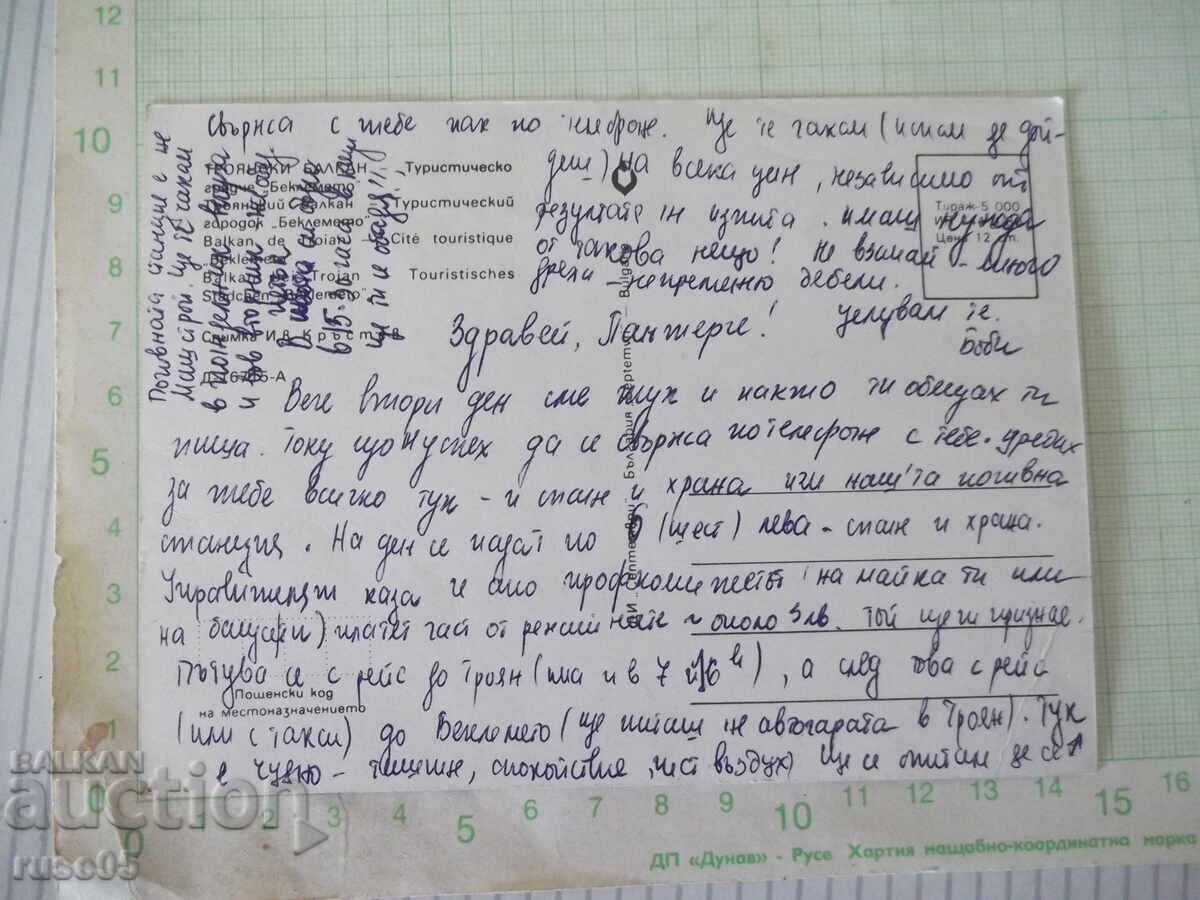 Здравей, Пантерче!
Вече втори ден сме тук и както ти обещах ти
пиша. Току що успех да се свържа по телефон с тебе. Уредих
за тебе всичко тук – и спане и храна или наш'та почивна
станция. На ден се падат по 6 (шест) лева – спане и храна.
Управителят каза че ако профкомитетът на майка ти или
на баща ти платят част от рениите и около 3 лв. той ще ги признае.
Пътува се с рейс до Троян (има и в 7 и в 16 ч), а след това с рейс
(или с такси) до Беклемето (ще питаш на автогарата в Троян). Тук
е чудно – тишина, спокойствие, чист въздух. Ще се опитам да се
свържа с тебе пак по телефон. Ще те чакам (искам да дой-
деш) на всяка цена, независимо от
резултата на изпита. имаш нужда
от такова нещо! Не взимай много
дрехи – непременно дебели.
Целувам те.
Боби
Почивната станция е на
Машстрой. Ще те чакам
в понеделник
и във вторник
в 15
ще ти се обадя!!!
ТРОЯНСКИ БАЛКАН – Туристическо
градче „Беклемето"
Троянский Балкан – Туристический
городок „Беклемето"
Balkan de Troian – Cité touristique
"Beklemeto"
Balkan Trojan – Touristisches
Städtchen "Beklemeto"
Снимка И. в. Кръстев
Д-16705-А
ДИ „Септември" България Septemvri – Bulgaria
Тираж 5 000
Цена 12 ст.
Пощенски код
на местоназначението
12
11
10
9
8
7
6
5
4
3
2
1
0
0 1 2 3 4 5 6 7 8 9 10 11 12 13 14 15 16
ДП «Дунав» - Русе Хартия мащабно-координатна марка
BALKAN
auction
ruse05